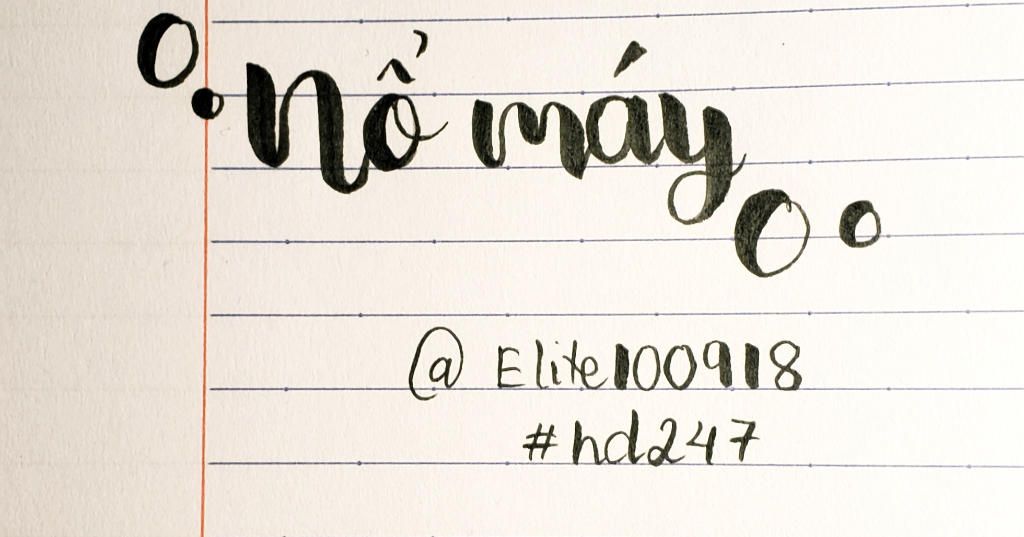 nổ máy
@Elite100918
#hd247